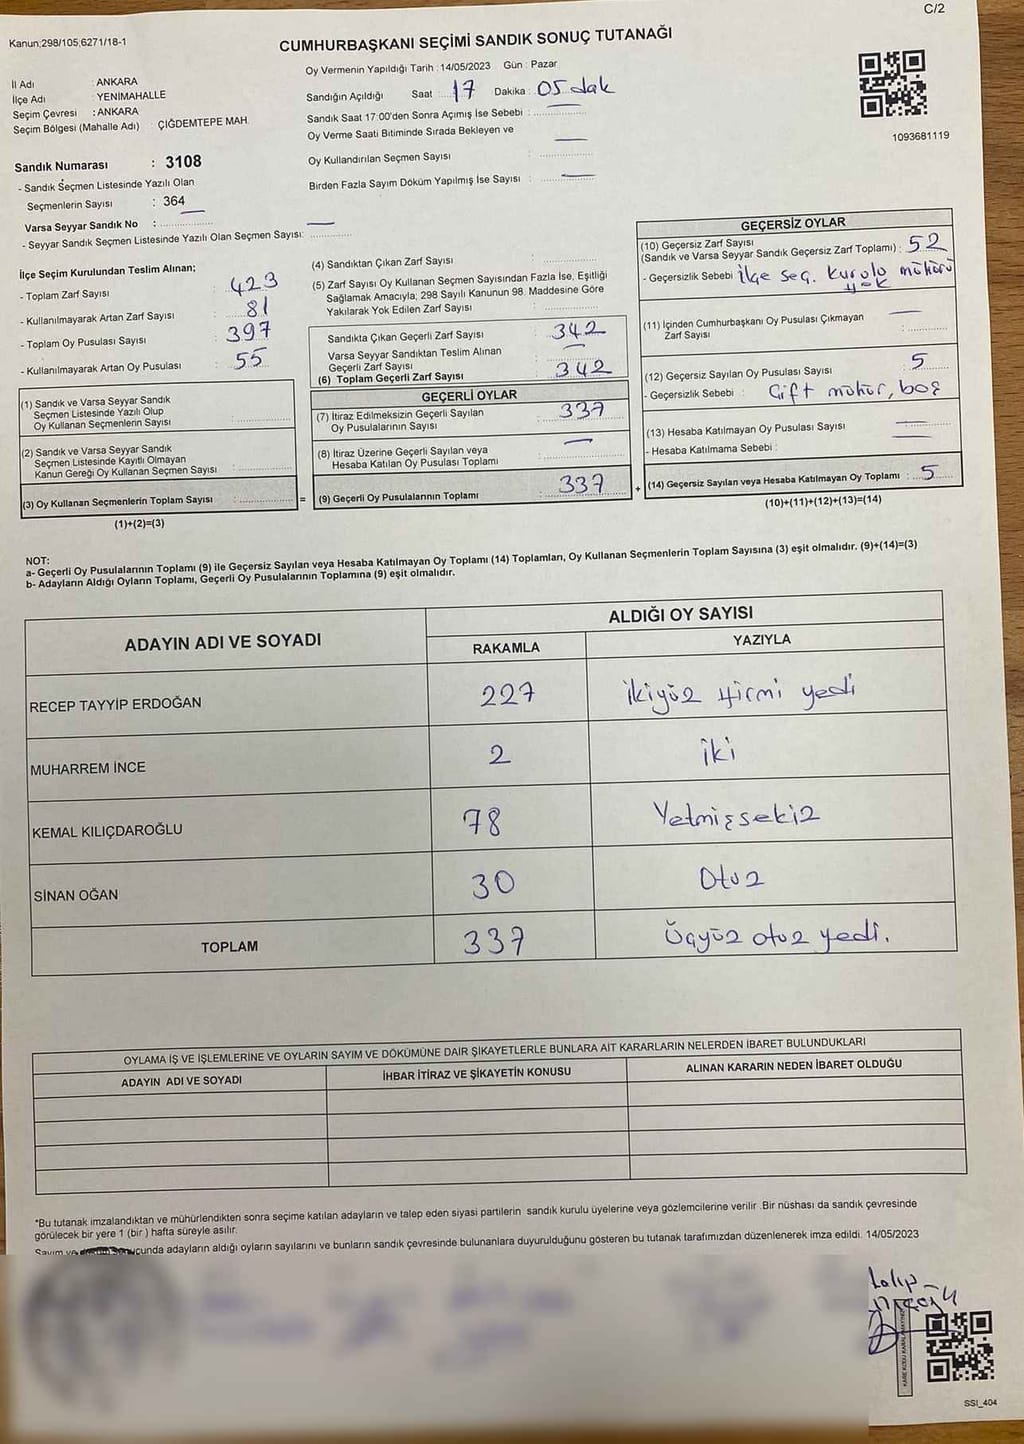 C/2
Kanun;298/105;6271/18-1
CUMHURBAŞKANI SEÇİMİ SANDIK SONUÇ TUTANAĞI
İl Adı : ANKARA
İlçe Adı : YENİMAHALLE
Seçim Çevresi : ANKARA
Seçim Bölgesi (Mahalle Adı) : ÇİĞDEMTEPE MAH.
Oy Vermenin Yapıldığı Tarih : 14/05/2023 Gün : Pazar
Sandığın Açıldığı Saat : 17 Dakika : 05 dak
Sandık Saat 17:00'den Sonra Açımış İse Sebebi : —
Oy Verme Saati Bitiminde Sırada Bekleyen ve
Oy Kullandırılan Seçmen Sayısı : —
Birden Fazla Sayım Döküm Yapılmış İse Sayısı : —
1093681119
Sandık Numarası : 3108
- Sandık Seçmen Listesinde Yazılı Olan
Seçmenlerin Sayısı : 364
Varsa Seyyar Sandık No : —
- Seyyar Sandık Seçmen Listesinde Yazılı Olan Seçmen Sayısı: —
İlçe Seçim Kurulundan Teslim Alınan;
- Toplam Zarf Sayısı : 423
- Kullanılmayarak Artan Zarf Sayısı : 81
- Toplam Oy Pusulası Sayısı : 397
- Kullanılmayarak Artan Oy Pusulası : 55
(1) Sandık ve Varsa Seyyar Sandık
Seçmen Listesinde Yazılı Olup
Oy Kullanan Seçmenlerin Sayısı :
(2) Sandık ve Varsa Seyyar Sandık
Seçmen Listesinde Kayıtlı Olmayan
Kanun Gereği Oy Kullanan Seçmen Sayısı :
(3) Oy Kullanan Seçmenlerin Toplam Sayısı : =
(1)+(2)=(3)
(4) Sandıktan Çıkan Zarf Sayısı :
(5) Zarf Sayısı Oy Kullanan Seçmen Sayısından Fazla İse, Eşitliği
Sağlamak Amacıyla; 298 Sayılı Kanunun 98. Maddesine Göre
Yakılarak Yok Edilen Zarf Sayısı :
Sandıkta Çıkan Geçerli Zarf Sayısı : 342
Varsa Seyyar Sandıktan Teslim Alınan
Geçerli Zarf Sayısı : —
(6) Toplam Geçerli Zarf Sayısı : 342
GEÇERLİ OYLAR
(7) İtiraz Edilmeksizin Geçerli Sayılan : 337
Oy Pusulalarının Sayısı
(8) İtiraz Üzerine Geçerli Sayılan veya : —
Hesaba Katılan Oy Pusulası Toplamı
(9) Geçerli Oy Pusulalarının Toplamı : 337 +
GEÇERSİZ OYLAR
(10) Geçersiz Zarf Sayısı
(Sandık ve Varsa Seyyar Sandık Geçersiz Zarf Toplamı) : 52
- Geçersizlik Sebebi : ilçe seç. kurulu mühürü
yok
(11) İçinden Cumhurbaşkanı Oy Pusulası Çıkmayan : —
Zarf Sayısı
(12) Geçersiz Sayılan Oy Pusulası Sayısı : 5
- Geçersizlik Sebebi : Çift mühür, boş
(13) Hesaba Katılmayan Oy Pusulası Sayısı : —
- Hesaba Katılmama Sebebi : —
(14) Geçersiz Sayılan veya Hesaba Katılmayan Oy Toplamı : 5
(10)+(11)+(12)+(13)=(14)
NOT:
a- Geçerli Oy Pusulalarının Toplamı (9) ile Geçersiz Sayılan veya Hesaba Katılmayan Oy Toplamı (14) Toplamları, Oy Kullanan Seçmenlerin Toplam Sayısına (3) eşit olmalıdır. (9)+(14)=(3)
b- Adayların Aldığı Oyların Toplamı, Geçerli Oy Pusulalarının Toplamına (9) eşit olmalıdır.
ADAYIN ADI VE SOYADI ALDIĞI OY SAYISI
RAKAMLA YAZIYLA
RECEP TAYYİP ERDOĞAN 227 ikiyüz yirmi yedi
MUHARREM İNCE 2 iki
KEMAL KILIÇDAROĞLU 78 Yetmişsekiz
SİNAN OĞAN 30 Otuz
TOPLAM 337 Üçyüz otuz yedi.
OYLAMA İŞ VE İŞLEMLERİNE VE OYLARIN SAYIM VE DÖKÜMÜNE DAİR ŞİKAYETLERLE BUNLARA AİT KARARLARIN NELERDEN İBARET BULUNDUKLARI
ADAYIN ADI VE SOYADI İHBAR İTİRAZ VE ŞİKAYETİN KONUSU ALINAN KARARIN NEDEN İBARET OLDUĞU
*Bu tutanak imzalandıktan ve mühürlendikten sonra seçime katılan adayların ve talep eden siyasi partilerin sandık kurulu üyelerine veya gözlemcilerine verilir .Bir nüshası da sandık çevresinde
görülecek bir yere 1 (bir ) hafta süreyle asılır.
Sayım ve adayların aldığı oyların sayılarını ve bunların sandık çevresinde bulunanlara duyurulduğunu gösteren bu tutanak tarafımızdan düzenlenerek imza edildi. 14/05/2023
SSİ_404